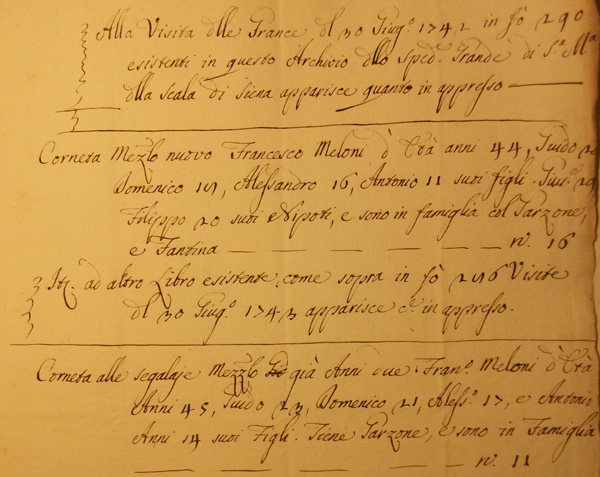 Alla Visita dlle Grance dl 30 Giug.º 1742 in fò 290
esistenti in questo Archivio dllo Sped.e Grande di S.a M.a
dlla Scala di Siena apparisce quanto in appresso
Corneta Mezzlo nuovo Francesco Meloni d' Età anni 44, Guido
Domenico 19, Alessandro 16, Antonio 11 suoi figli. Gius.e 29
Filippo 20 suoi Nipoti, e sono in famiglia col Garzone,
e Fantina — — — — — — n. 16
It. ad altro Libro esistente come sopra in fò 296 Visite
dl 30 Giug.º 1743 apparisce c.e in appresso.
Corneta alle segalaje Mezzlo già Anni due Fran.º Meloni d' Età
Anni 45, Guido 23, Domenico 21, Aless.º 17, e Antonio
Anni 14 suoi Figli. Tiene Garzone, e sono in Famiglia
— — — — — — — n. 11